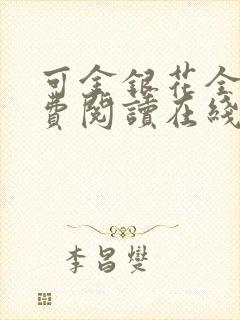 可金銀花全
費閱讀在綫
李昌燮